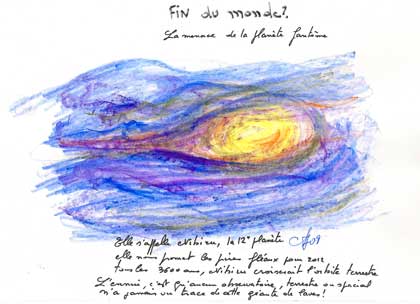 Fin du monde ?
La menace de la planète fantôme
Elle s'appelle Nibiru, la 12e planète
elle nous promet les pires fléaux pour 2012
tous les 3600 ans, Nibiru croiserait l'orbite terrestre
L'ennui, c'est qu'aucun observatoire, terrestre ou spacial
n'a jamais vu trace de cette géante de l'ans !